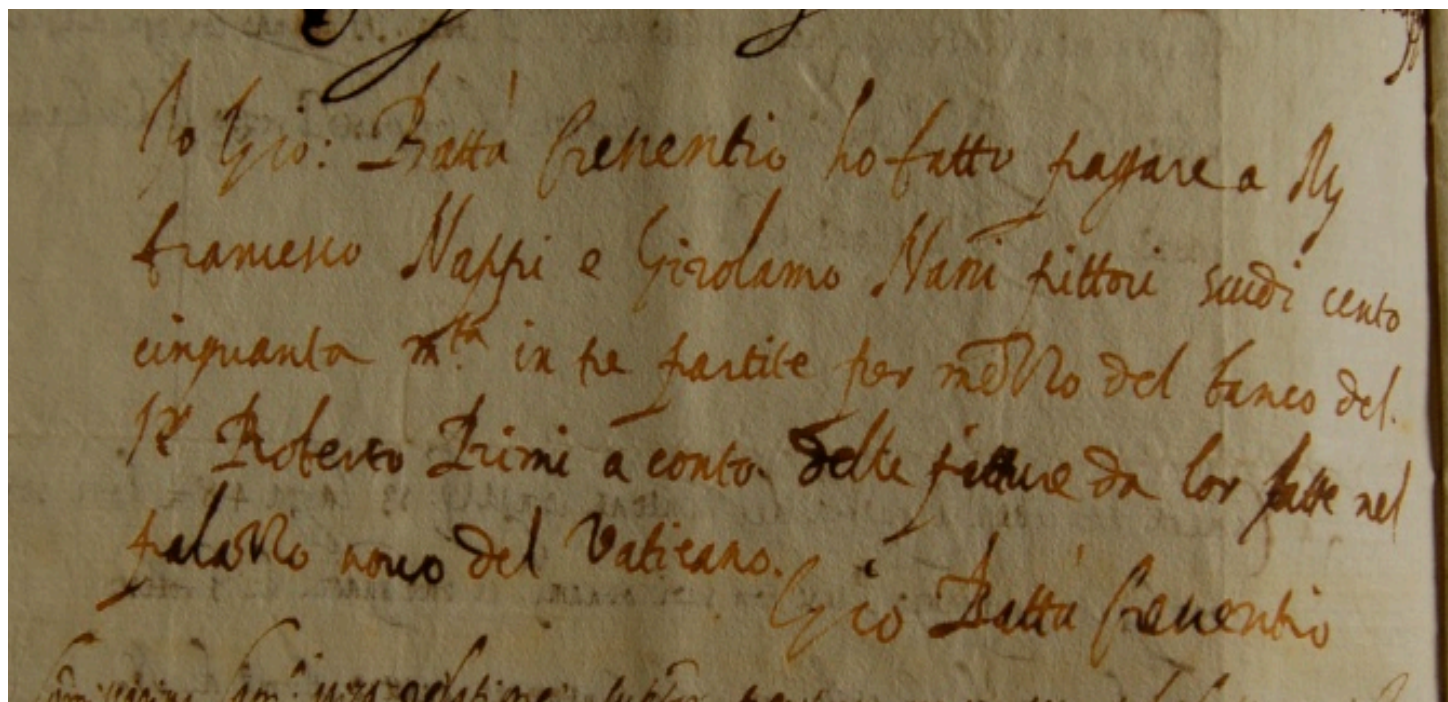 Io Gio: Batta Crescentio ho fatto pagare a Mr
francesco Nappi e Girolamo Nanni pittori scudi cento
cinquanta mta in tre partite per mezzo del banco del.
Sr Roberto Primi a conto delle pitture da lor fatte nel
palazzo novo del Vaticano.
Gio Batta Crescentio